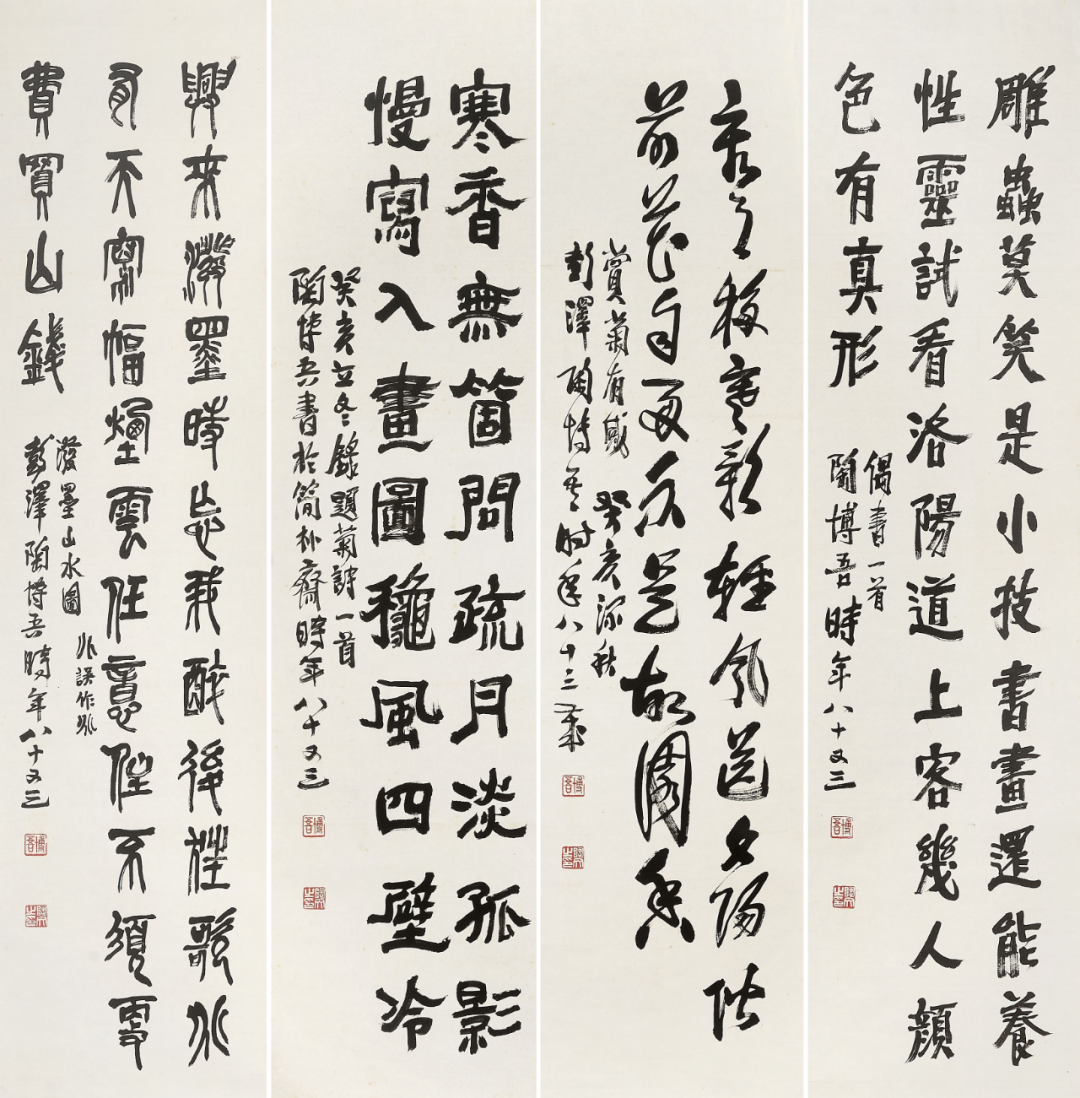 雕蟲莫笑是小技書畫還能養
性靈試看洛陽道上客幾人顏
色有真形
偶書一首
陶博吾時年八十又三
博吾
移寒影輕風送夕陽階
前花自是故園香
賞菊有感 癸亥深秋
彭澤陶博吾時年八十三歲
博吾
寒香無箇問疏月淡孤影
慢寫入畫圖龝風四壁冷
癸亥立冬錄題菊詩一首
陶博吾書於簡朴齋時年八十又三
博吾
興來潑墨時忘我醉後狂歌
有天幅煙雲任意住不須更
費買山錢
潑墨山水圖 誤作
彭澤陶博吾時年八十又三
博吾